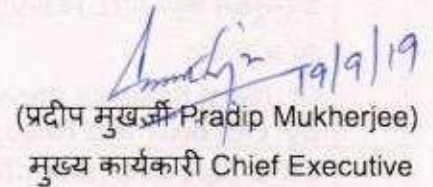 19/9/19
(प्रदीप मुखर्जी Pradip Mukherjee)
मुख्य कार्यकारी Chief Executive